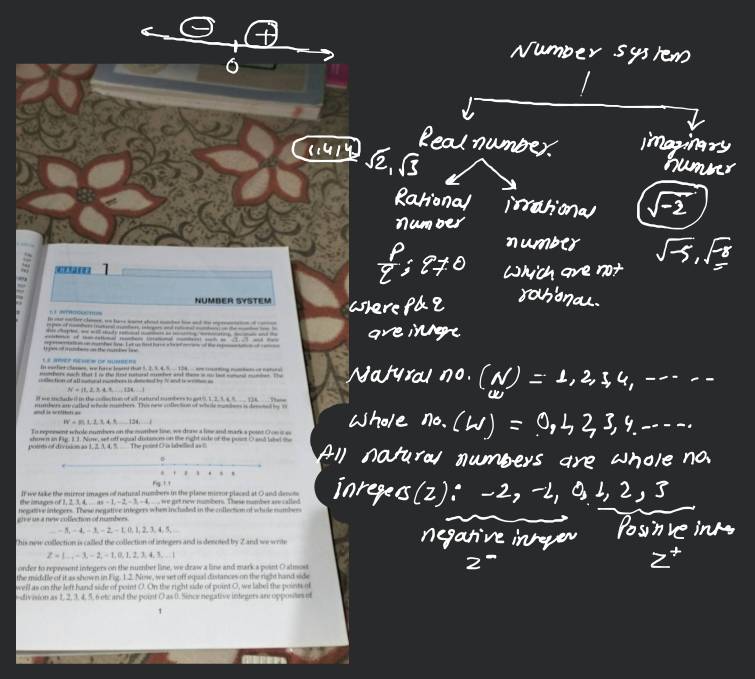 − +
0
Number system
Real number.
imaginary
number
1.414
√2, √3
Rational
number
irrational
number
√-2
p/q ; q≠0
which are not
rational.
√-5, √-8
where p & q
are intege
Natural no. (N) = 1, 2, 3, 4, ---- --
Whole no. (W) = 0, 1, 2, 3, 4 -----.
All natural numbers are whole no.
integers (Z): -2, -1, 0, 1, 2, 3
negative integer
Z⁻
Positive inte
Z⁺
CHAPTER 1
NUMBER SYSTEM
1.1 INTRODUCTION
In our earlier classes, we have learnt about number line and the representation of various
types of numbers (natural numbers, integers and rational numbers) on the number line. In
this chapter, we will study rational numbers as recurring/terminating decimals and the
existence of non-rational numbers (irrational numbers) such as √2, √3 and their
representation on number line. Let us first have a brief review of the representation of various
types of numbers on the number line.
1.2 BRIEF REVIEW OF NUMBERS
In earlier classes, we have learnt that 1, 2, 3, 4, 5, ... 124, ... are counting numbers or natural
numbers such that 1 is the first natural number and there is no last natural number. The
collection of all natural numbers is denoted by N and is written as
N = {1, 2, 3, 4, 5, ..., 124, ...}
If we include 0 in the collection of all natural numbers to get 0, 1, 2, 3, 4, 5, ..., 124, ... These
numbers are called whole numbers. This new collection of whole numbers is denoted by W
and is written as
W = {0, 1, 2, 3, 4, 5, ..., 124, ...}
To represent whole numbers on the number line, we draw a line and mark a point O on it as
shown in Fig. 1.1. Now, set off equal distances on the right side of the point O and label the
points of division as 1, 2, 3, 4, 5, .... The point O is labelled as 0.
O
0 1 2 3 4 5 6
Fig. 1.1
If we take the mirror images of natural numbers in the plane mirror placed at O and denote
the images of 1, 2, 3, 4, ... as −1, −2, −3, −4, ..., we get new numbers. These number are called
negative integers. These negative integers when included in the collection of whole numbers
give us a new collection of numbers.
... −5, −4, −3, −2, −1, 0, 1, 2, 3, 4, 5, ...
This new collection is called the collection of integers and is denoted by Z and we write
Z = {..., −3, −2, −1, 0, 1, 2, 3, 4, 5, ...}
order to represent integers on the number line, we draw a line and mark a point O almost
the middle of it as shown in Fig. 1.2. Now, we set off equal distances on the right hand side
well as on the left hand side of point O. On the right side of point O, we label the points of
division as 1, 2, 3, 4, 5, 6 etc and the point O as 0. Since negative integers are opposites of
1